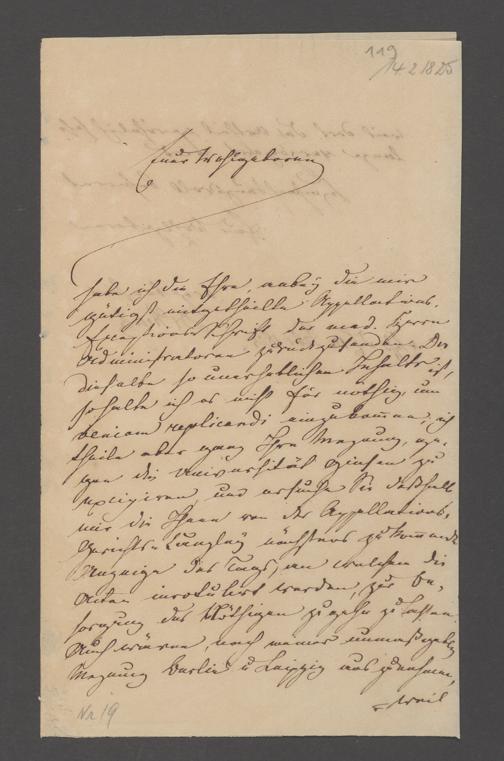 119
14 2 1825
Euer Wohlgeboren
habe ich die Ehre, anbey die mir
gütigst mitgetheilte Appellations-
Exceptions Schrift der med. Herrn
Administratoren zurückzusenden. Da
dieselbe so unerheblichen Inhalts ist,
so halte ich es nicht für nöthig, um
veniam replicandi einzukommen, ich
theile aber ganz Ihre Meynung, ge-
gen die Universität Giessen zu
excipiren, und ersuche Sie deßhalb
mir die Ihnen von der Appellations-
Gerichts-Canzley nächstens zukommende
Anzeige des Tags, an welchem die
Acten inrotulirt werden, zur Be-
sorgung des Nöthigen zugehn zu lassen.
Auch wären, nach meiner unmaßgebl.
Meynung Berlin u Leipzig auszunehmen,
weil
Nr 19